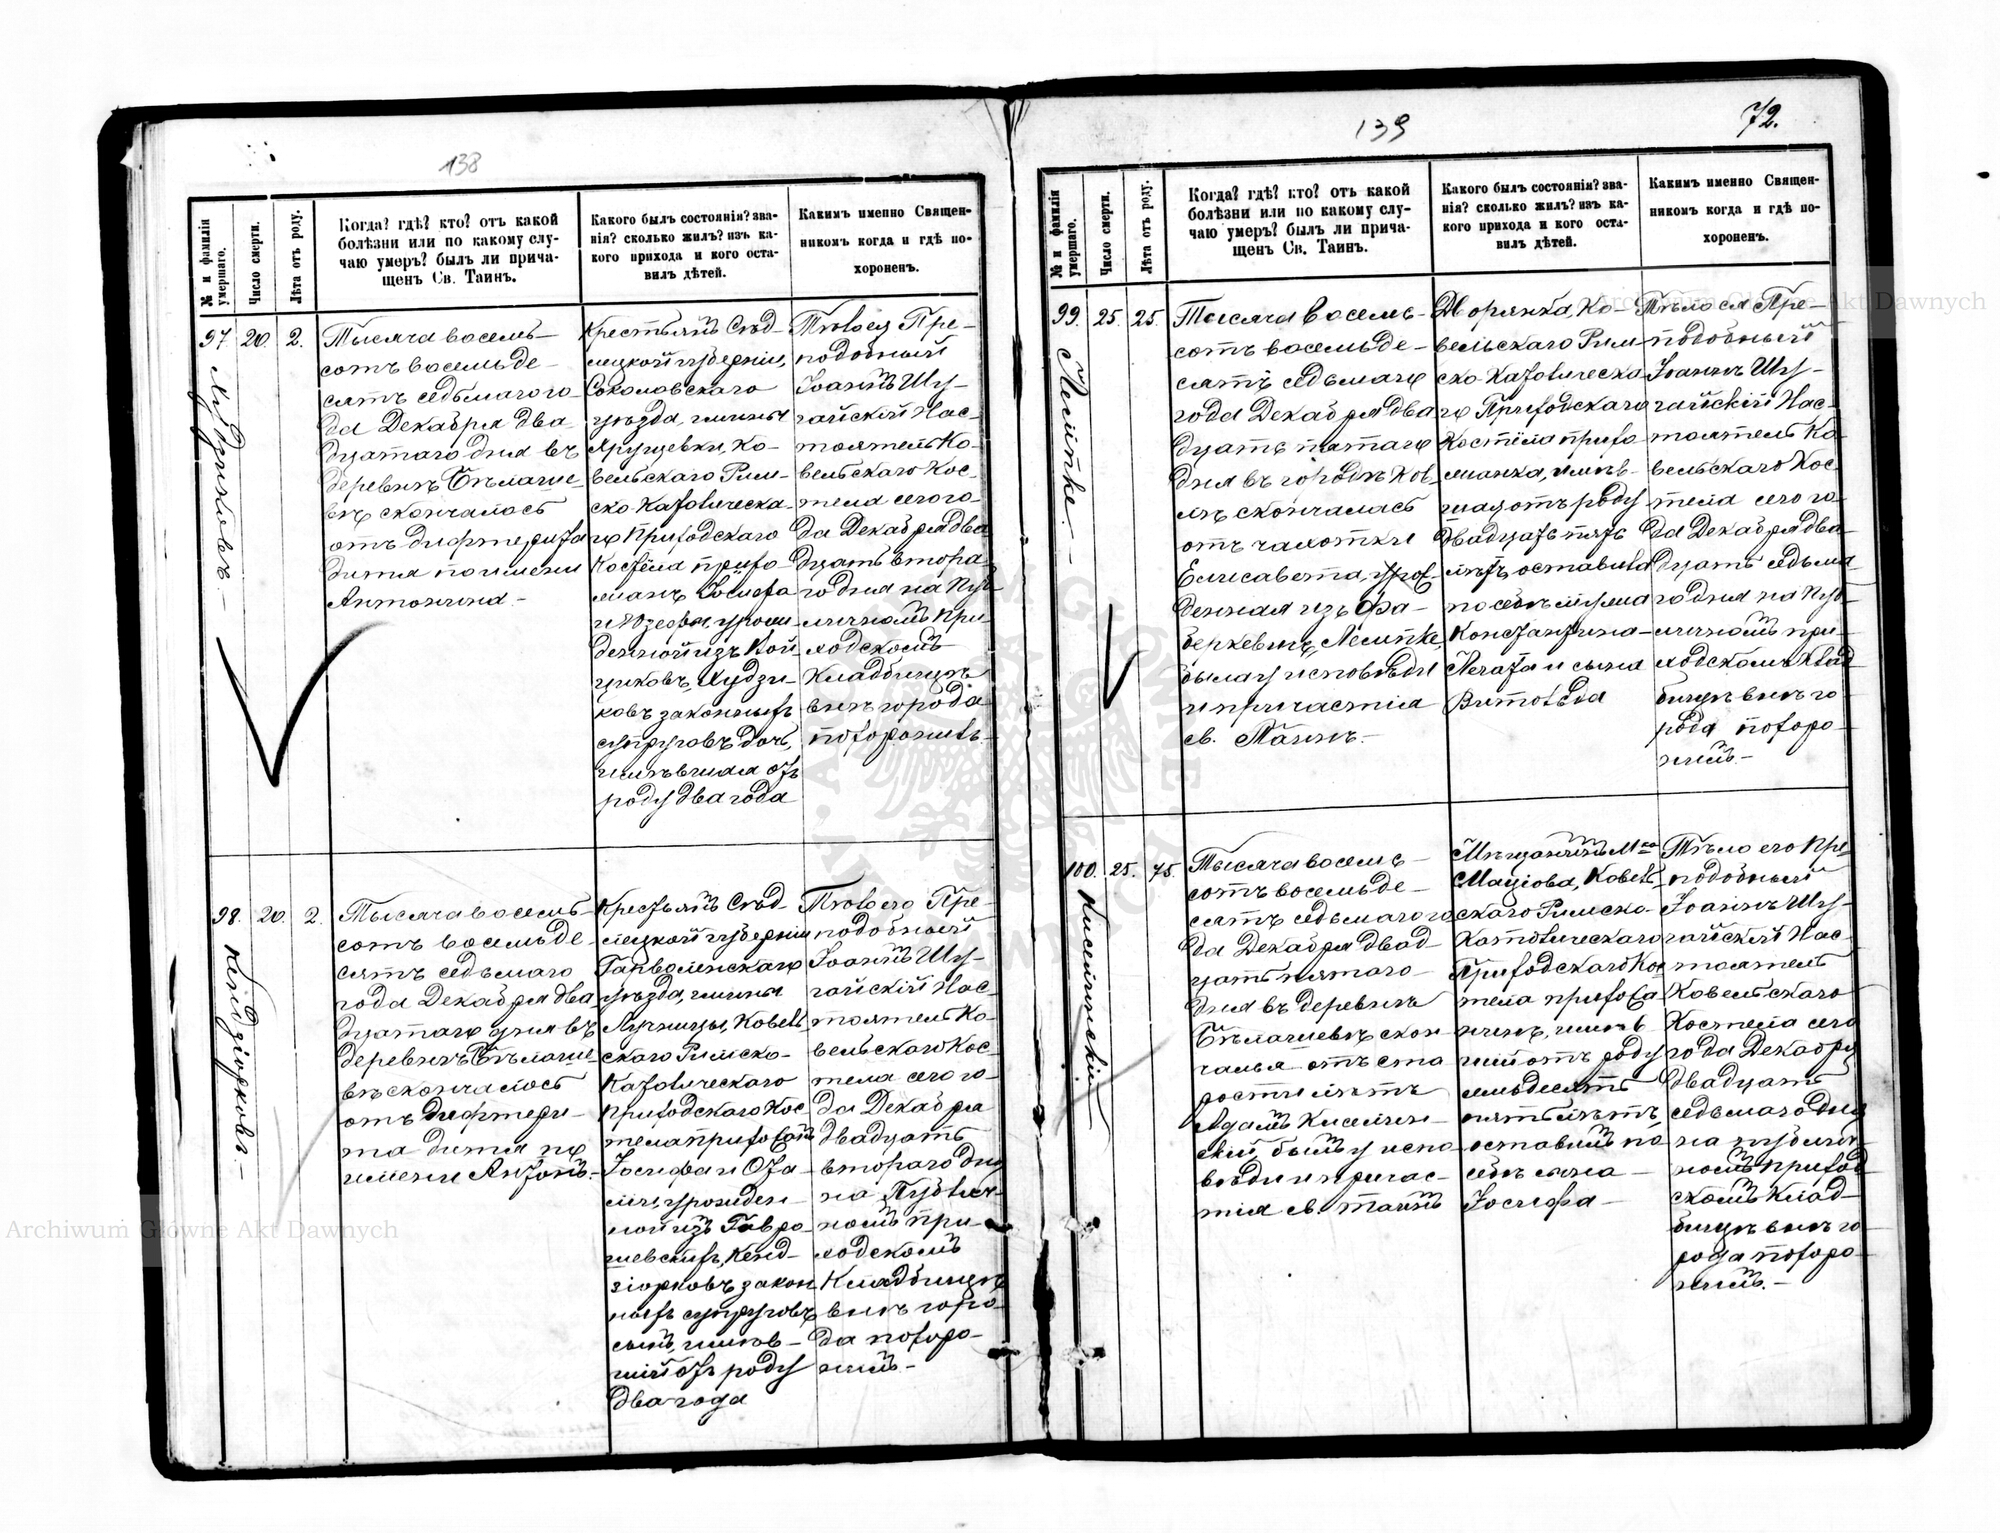 138
№ и фамилія умершаго.
Число смерти.
Лѣта отъ роду.
Когда? гдѣ? кто? отъ какой
болѣзни или по какому слу-
чаю умеръ? былъ ли прича-
щенъ Св. Таинъ.
Какого былъ состоянія? зва-
нія? сколько жилъ? изъ ка-
кого прихода и кого оста-
вилъ дѣтей.
Каимъ именно Священ-
никомъ когда и гдѣ по-
хороненъ.
97
20.
2.
Тысяча восемь-
сотъ восемьде-
сятъ седьмаго го-
да Декабря два
дцатаго дня въ
деревнѣ Бѣлаше
вѣ скончалось
отъ дифтерита
дитя по имени
Антонина -
Крестьянъ Сѣд-
лецкой губерніи,
Соколовскаго
уѣзда, гмины
Яруцевки, Ко-
вельскаго Рим-
ско Католическа-
го Приходскаго
Костёла прихо-
жанъ Іосифа
урожд
денной изъ Вой
циковъ, Худзи-
ковъ законныхъ
супруговъ дочь,
имѣвшая отъ
роду два года
Тѣло ея Пре-
подобный
Іоаннъ Шу-
гайскій Нас-
тоятель Ко-
вельскаго Кос-
тела сего го-
да Декабря два
дцать втора-
го дня на Пуб-
личномъ При-
ходскомъ
Кладбищѣ
внѣ города
похоронилъ.
98.
20.
2.
Кендзіорковъ.-
Тысяча восемь-
сотъ восемьде-
сятъ седьмаго
года Декабря два
дцатаго дня въ
деревнѣ Бѣлаше-
вѣ скончалось
отъ дифтери-
та дитя по
имени Антонъ.-
Крестьянъ Сѣд-
лецкой губерніи
Гарволинскаго
уѣзда, гмины
Лучницы, Ковель
скаго Римско-
Католическаго
Приходскаго Кос
тела прихожанъ
Іосифа и
урожден-
ной изъ Гавро-
шевскихъ, Кенд-
зіорковъ закон
ныхъ супруговъ
сынъ, имѣв-
шій отъ роду
два года
Тѣло его Пре-
подобный
Іоаннъ Шу-
гайскій Нас-
тоятель Ко-
вельскаго Кос-
тела сего го-
да Декабря
двадцать
втораго дня
на Публич-
номъ при-
ходскомъ
Кладбищѣ
внѣ горо-
да похоро-
нилъ.-
139
72.
№ и фамилія умершаго.
Число смерти.
Лѣта отъ роду.
Когда? гдѣ? кто? отъ какой
болѣзни или по какому слу-
чаю умеръ? былъ ли прича-
щенъ Св. Таинъ.
Какого былъ состоянія? зва-
нія? сколько жилъ? изъ ка-
кого прихода и кого оста-
вилъ дѣтей.
Какимъ именно Священ-
никомъ когда и гдѣ по-
хороненъ.
99.
25.
25.
Лемпке.-
Тысяча восемь-
сотъ восемьде-
сятъ седьмаго
года Декабря два
дцать пятаго
дня въ городѣ Ков
лѣ скончалась
отъ чахотки
Елисавета, урож-
денная изъ Фа-
беркевичъ, Лемпке,
была у исповѣди
и причастія
св. Таинъ.-
Дворянка, Ко-
вельскаго Рим
ско Католическа-
го Приходскаго
Костёла прихо-
жанка, имѣв-
шая отъ роду
двадцать пять
лѣтъ, оставила
по себѣ мужа
Константина-
и сына
Витольда
Тѣло ея Пре-
подобный
Іоаннъ Шу-
гайскій Нас-
тоятель Ко-
вельскаго Кос
тела сего го-
да Декабря два-
дцать седьма
го дня на Пуб-
личномъ при-
ходскомъ Клад
бищѣ внѣ го-
рода похоро-
нилъ.-
100.
25.
75.
Киселинскій
Тысяча восемь-
сотъ восемьде-
сятъ седьмаго го
да Декабря двад-
цать пятаго-
дня въ деревнѣ
Бѣлашевѣ скон
чался отъ ста
рости лѣтъ
Адамъ Киселин-
скій, былъ у испо
вѣди и причас-
тія св. таинъ
Мѣщанинъ М-ка
Маціова, Ковель-
скаго Римско-
Католическаго
Приходскаго Кос
тела прихожа
нинъ, имѣв
шій отъ роду
семьдесятъ
пять лѣтъ,
оставилъ по
себѣ сына-
Іосифа-
Тѣло его Пре
подобный
Іоаннъ Шу-
гайскій Нас-
тоятель
Ковельскаго
Костела сего
года Декабря
двадцать
седьмаго дня
на публич-
номъ приход
скомъ Клад-
бищѣ внѣ го
рода похоро-
нилъ.-
Archiwum Główne Akt Dawnych
Archiwum Główne Akt Dawnych